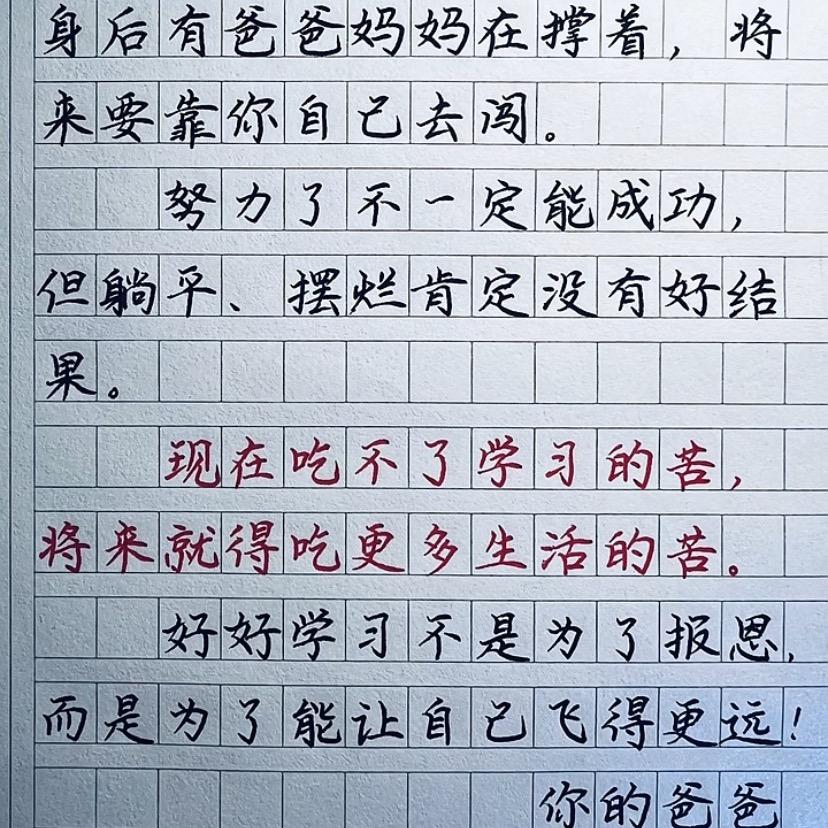 身后有爸爸妈妈在撑着，将
来要靠你自己去闯。
努力了不一定能成功，
但躺平、摆烂肯定没有好结
果。
现在吃不了学习的苦，
将来就得吃更多生活的苦。
好好学习不是为了报恩，
而是为了能让自己飞得更远！
你的爸爸